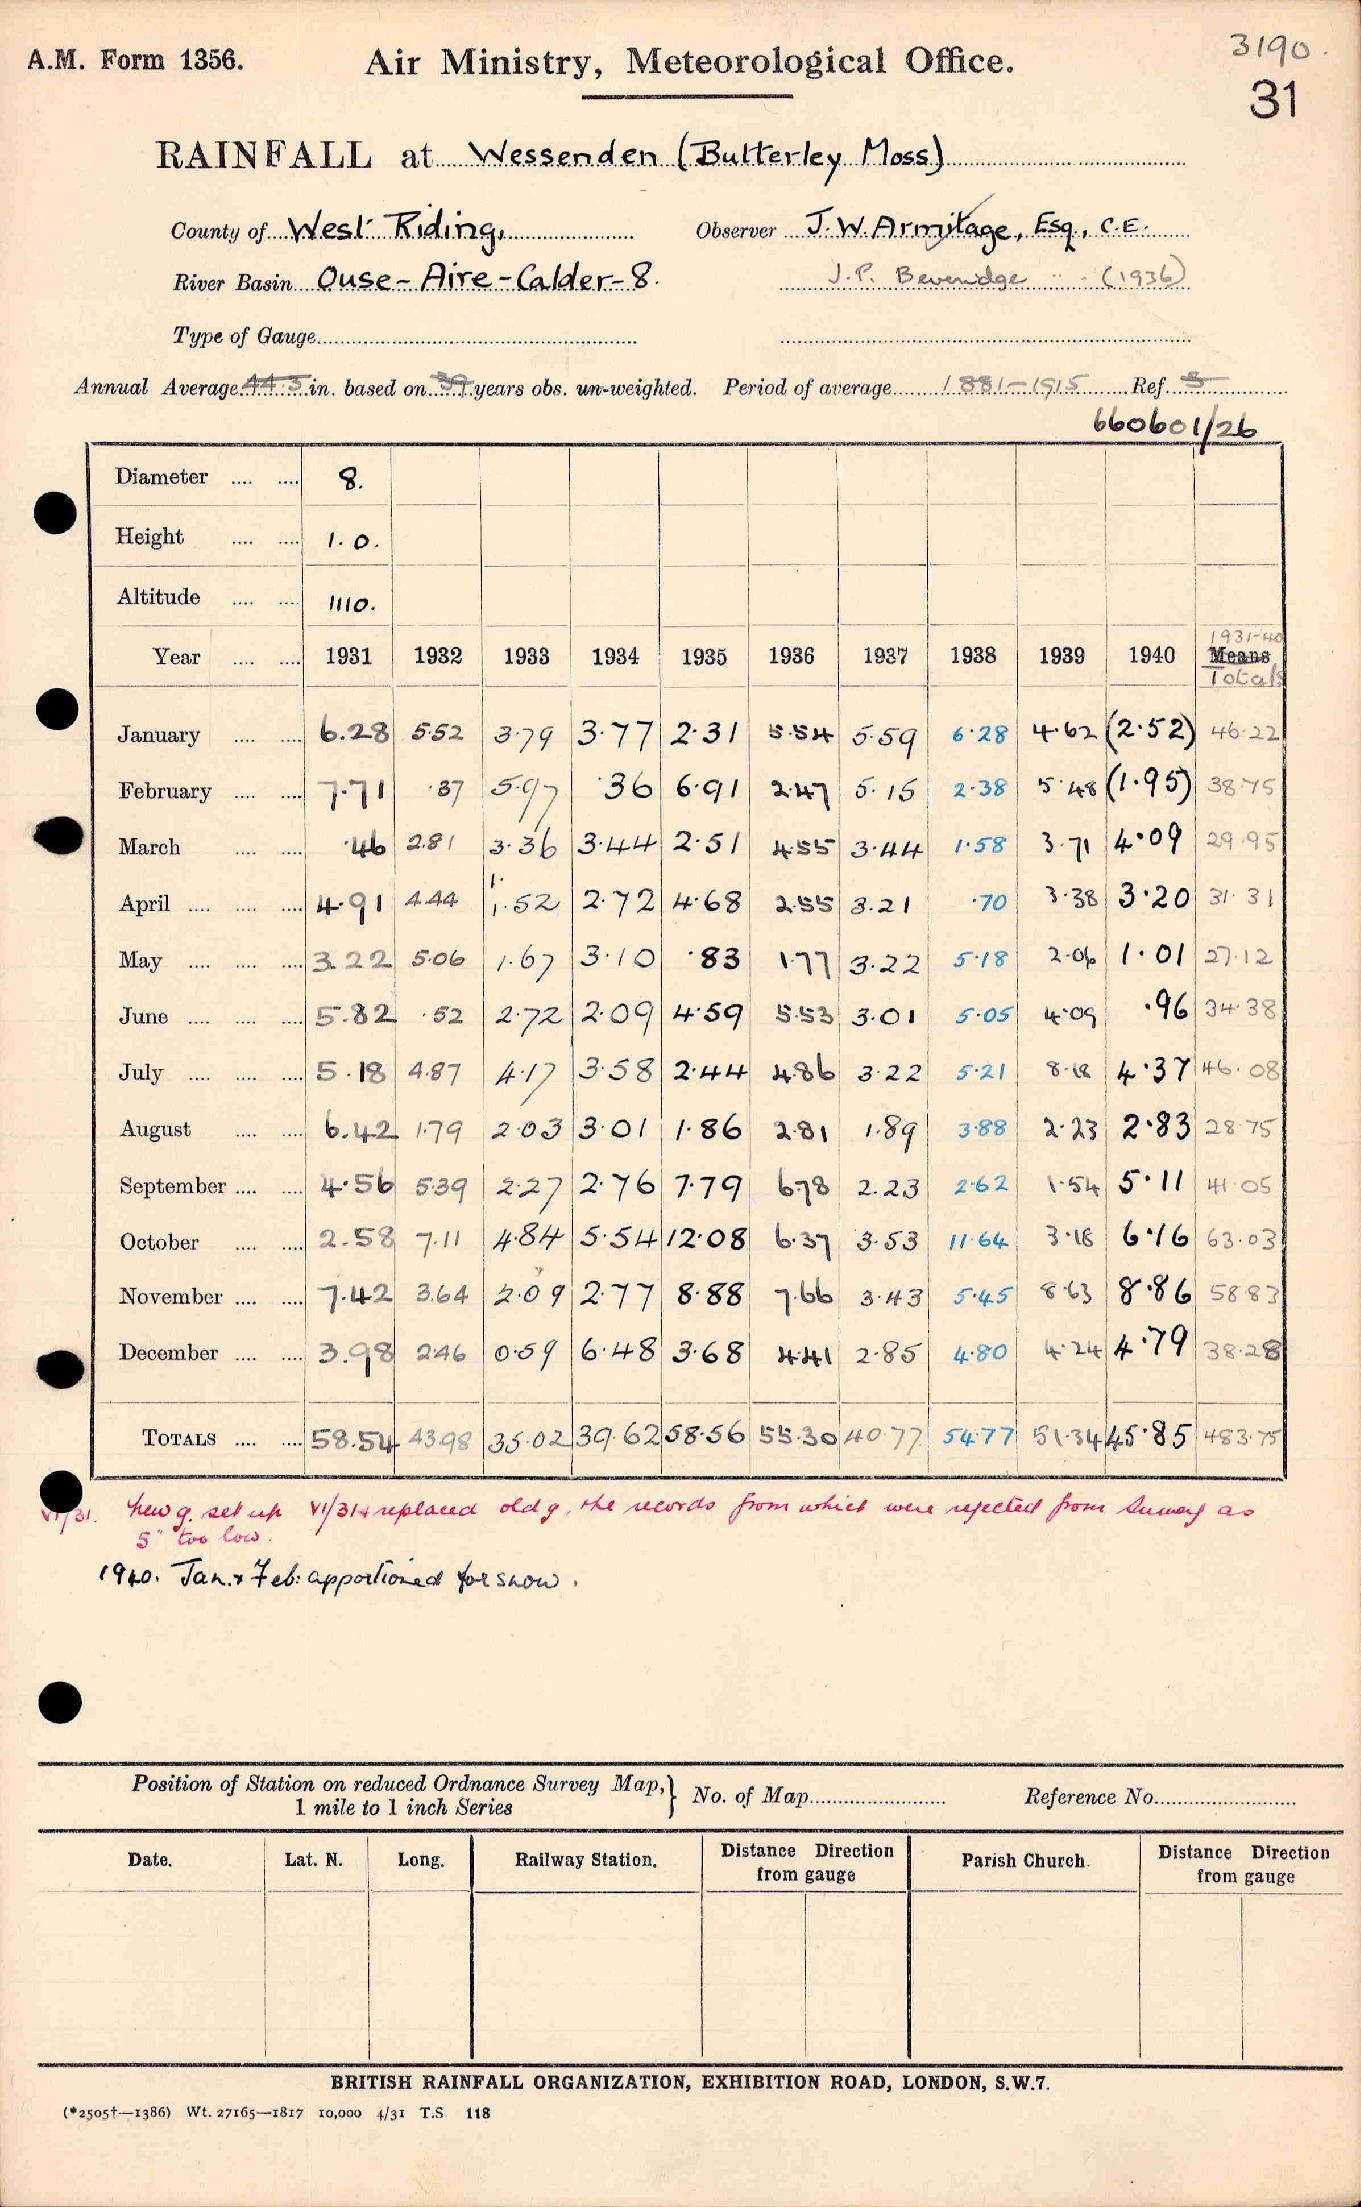 3190.
A.M. Form 1356. Air Ministry, Meteorological Office.
31
RAINFALL at Wessenden (Butterley Moss)
County of West Riding, Observer J.W. Armitage, Esq., C.E.
River Basin Ouse - Aire - Calder - 8. J.P. Beveridge (1936)
Type of Gauge
Annual Average 44.5 in. based on 39 years obs. un-weighted. Period of average 1881-1915 Ref. 5
660601/26
Diameter .... .... 8.
Height .... .... 1. 0.
Altitude .... .... 1110.
Year .... .... 1931 1932 1933 1934 1935 1936 1937 1938 1939 1940 1931-40 Means Totals
January .... .... 6.28 5.52 3.79 3.77 2.31 5.54 5.59 6.28 4.62 (2.52) 46.22
February .... .... 7.71 .37 5.97 .36 6.91 2.47 5.15 2.38 5.48 (1.95) 38.75
March .... .... .46 2.81 3.36 3.44 2.51 4.55 3.44 1.58 3.71 4.09 29.95
April .... .... .... 4.91 4.44 1. 1.52 2.72 4.68 2.55 3.21 .70 3.38 3.20 31.31
May .... .... .... 3.22 5.06 1.67 3.10 .83 1.77 3.22 5.18 2.06 1.01 27.12
June .... .... .... 5.82 .52 2.72 2.09 4.59 5.53 3.01 5.05 4.09 .96 34.38
July .... .... .... 5.18 4.87 4.17 3.58 2.44 4.86 3.22 5.21 8.18 4.37 46.08
August .... .... 6.42 1.79 2.03 3.01 1.86 2.81 1.89 3.88 2.23 2.83 28.75
September .... .... 4.56 5.39 2.27 2.76 7.79 6.78 2.23 2.62 1.54 5.11 41.05
October .... .... 2.58 7.11 4.84 5.54 12.08 6.37 3.53 11.64 3.18 6.16 63.03
November .... .... 7.42 3.64 2.09 2.77 8.88 7.66 3.43 5.45 8.63 8.86 58.83
December .... .... 3.98 2.46 0.59 6.48 3.68 4.41 2.85 4.80 4.24 4.79 38.28
TOTALS .... .... 58.54 43.98 35.02 39.62 58.56 55.30 40.77 54.77 51.34 45.85 483.75
VI/31. New g. set up VI/31 & replaced old g, the records from which were rejected from Survey as
5" too low.
1940. Jan. & Feb: apportioned for snow.
Position of Station on reduced Ordnance Survey Map, } No. of Map Reference No.
1 mile to 1 inch Series
Date. Lat. N. Long. Railway Station. Distance Direction from gauge Parish Church. Distance Direction from gauge
BRITISH RAINFALL ORGANIZATION, EXHIBITION ROAD, LONDON, S.W.7.
(*2505†—1386) Wt. 27165—1817 10,000 4/31 T.S 118